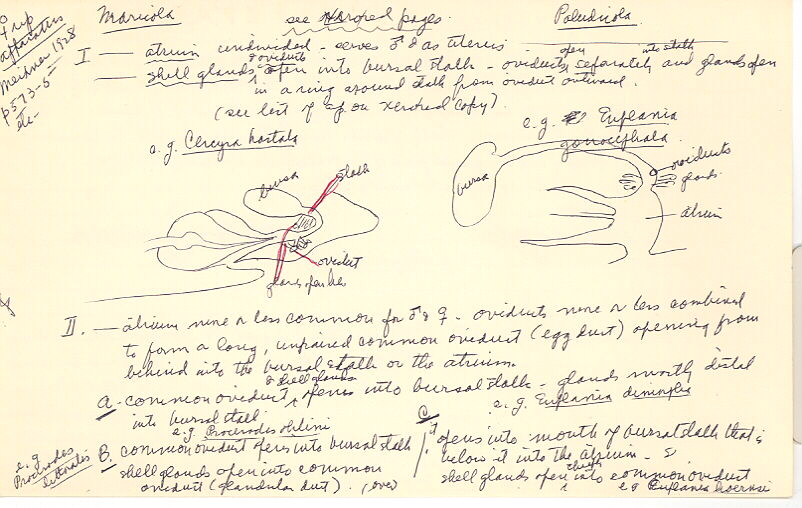 Maricola see Xeroxed pages. Paludicola
♂ + ♀ up
apparatus
Meixner 1928
p 573-5
etc-
I — atrium undivided - serves ♂ & as uterus -
— shell glands & oviducts open into bursal stalk - oviducts open separately into stalk and glands open
in a ring around stalk from oviduct outward.
(see list of sp on xeroxed copy).
e.g. Cercyra hastata
e.g. Euplania
gonocephala
bursa
stalk
oviduct
glands open here
bursa
oviducts
glands
atrium
II. — atrium more or less common for ♂ & ♀ - oviducts more or less combined
to form a long, unpaired common oviduct (egg duct) opening from
behind into the bursal stalk or the atrium.
A - common oviduct & shell glands opens into bursal stalk - glands mostly distal
into bursal stalk
e.g. Procerodes ohlini
e.g. Euplania
B. common oviduct opens into bursal stalk
shell glands open into common
oviduct (glandular duct). (over)
e.g
Procerodes
littoralis
C. opens into mouth of bursal stalk that is
below it into the atrium - &
shell glands open into common oviduct
e g Euplania